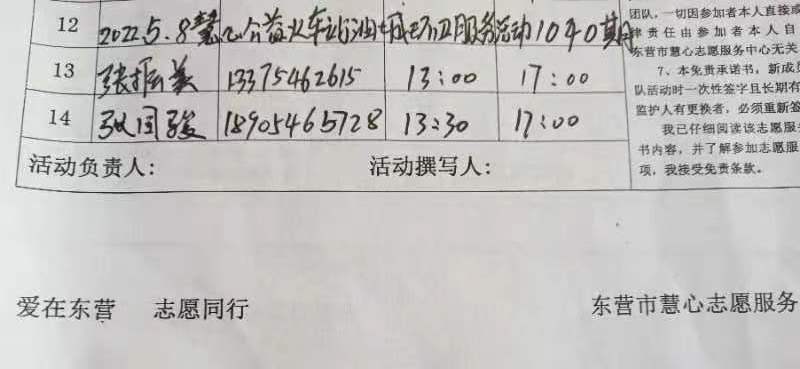 12 2022.5.8慧心公益火车站油城环卫服务活动1040期
13 张振美 13375462615 13:00 17:00
14 张国骏 18905465728 13:30 17:00
活动负责人: 活动撰写人:
团队，一切因参加者本人直接或
律责任由参加者本人自
东营市慧心志愿服务中心无关
7、本免责承诺书，新成员
队活动时一次性签字且长期有
监护人有更换者，必须重新签
我已仔细阅读该志愿服务
书内容，并了解参加志愿服
项，我接受免责条款。
爱在东营 志愿同行
东营市慧心志愿服务